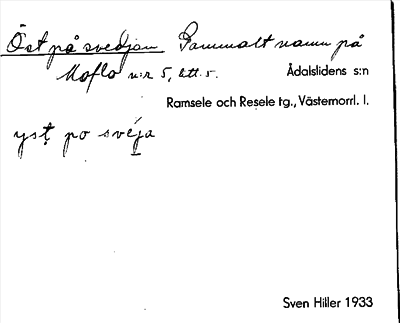 Öst på svedjan Gammalt namn på
Moflo n:r 5, litt. 5.
Ådalslidens s:n
Ramsele och Resele tg., Västernorrl. l.
yst po sveja
Sven Hiller 1933